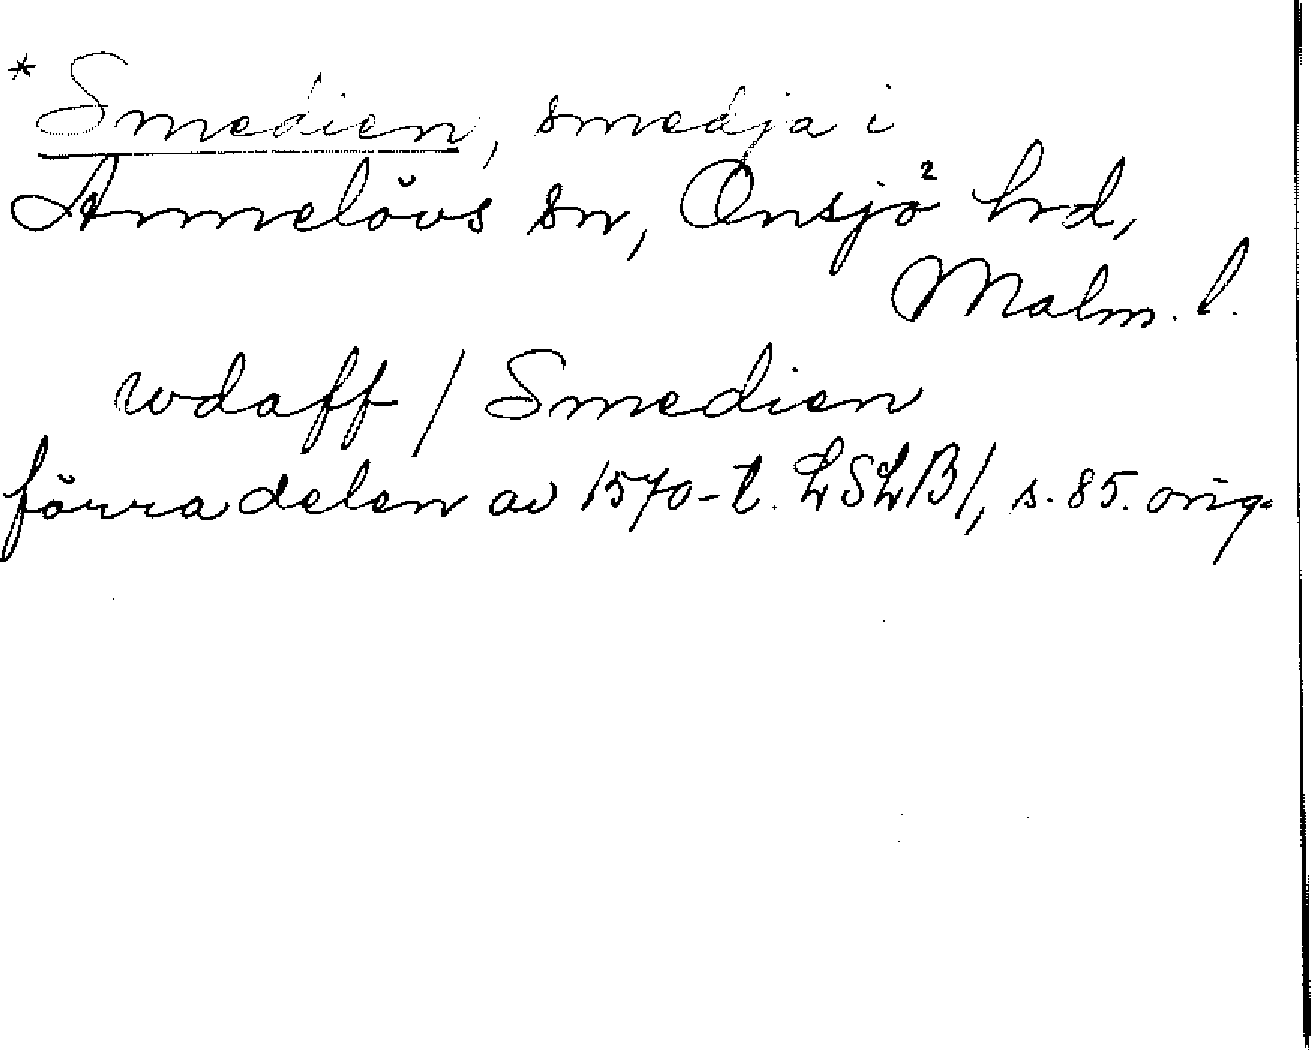 * Smedien, smedja i
Annelövs sn, Onsjö hrd,
Malm. l.
wdaff / Smedien
förra delen av 1570-t. LSLB/, s. 85. orig.